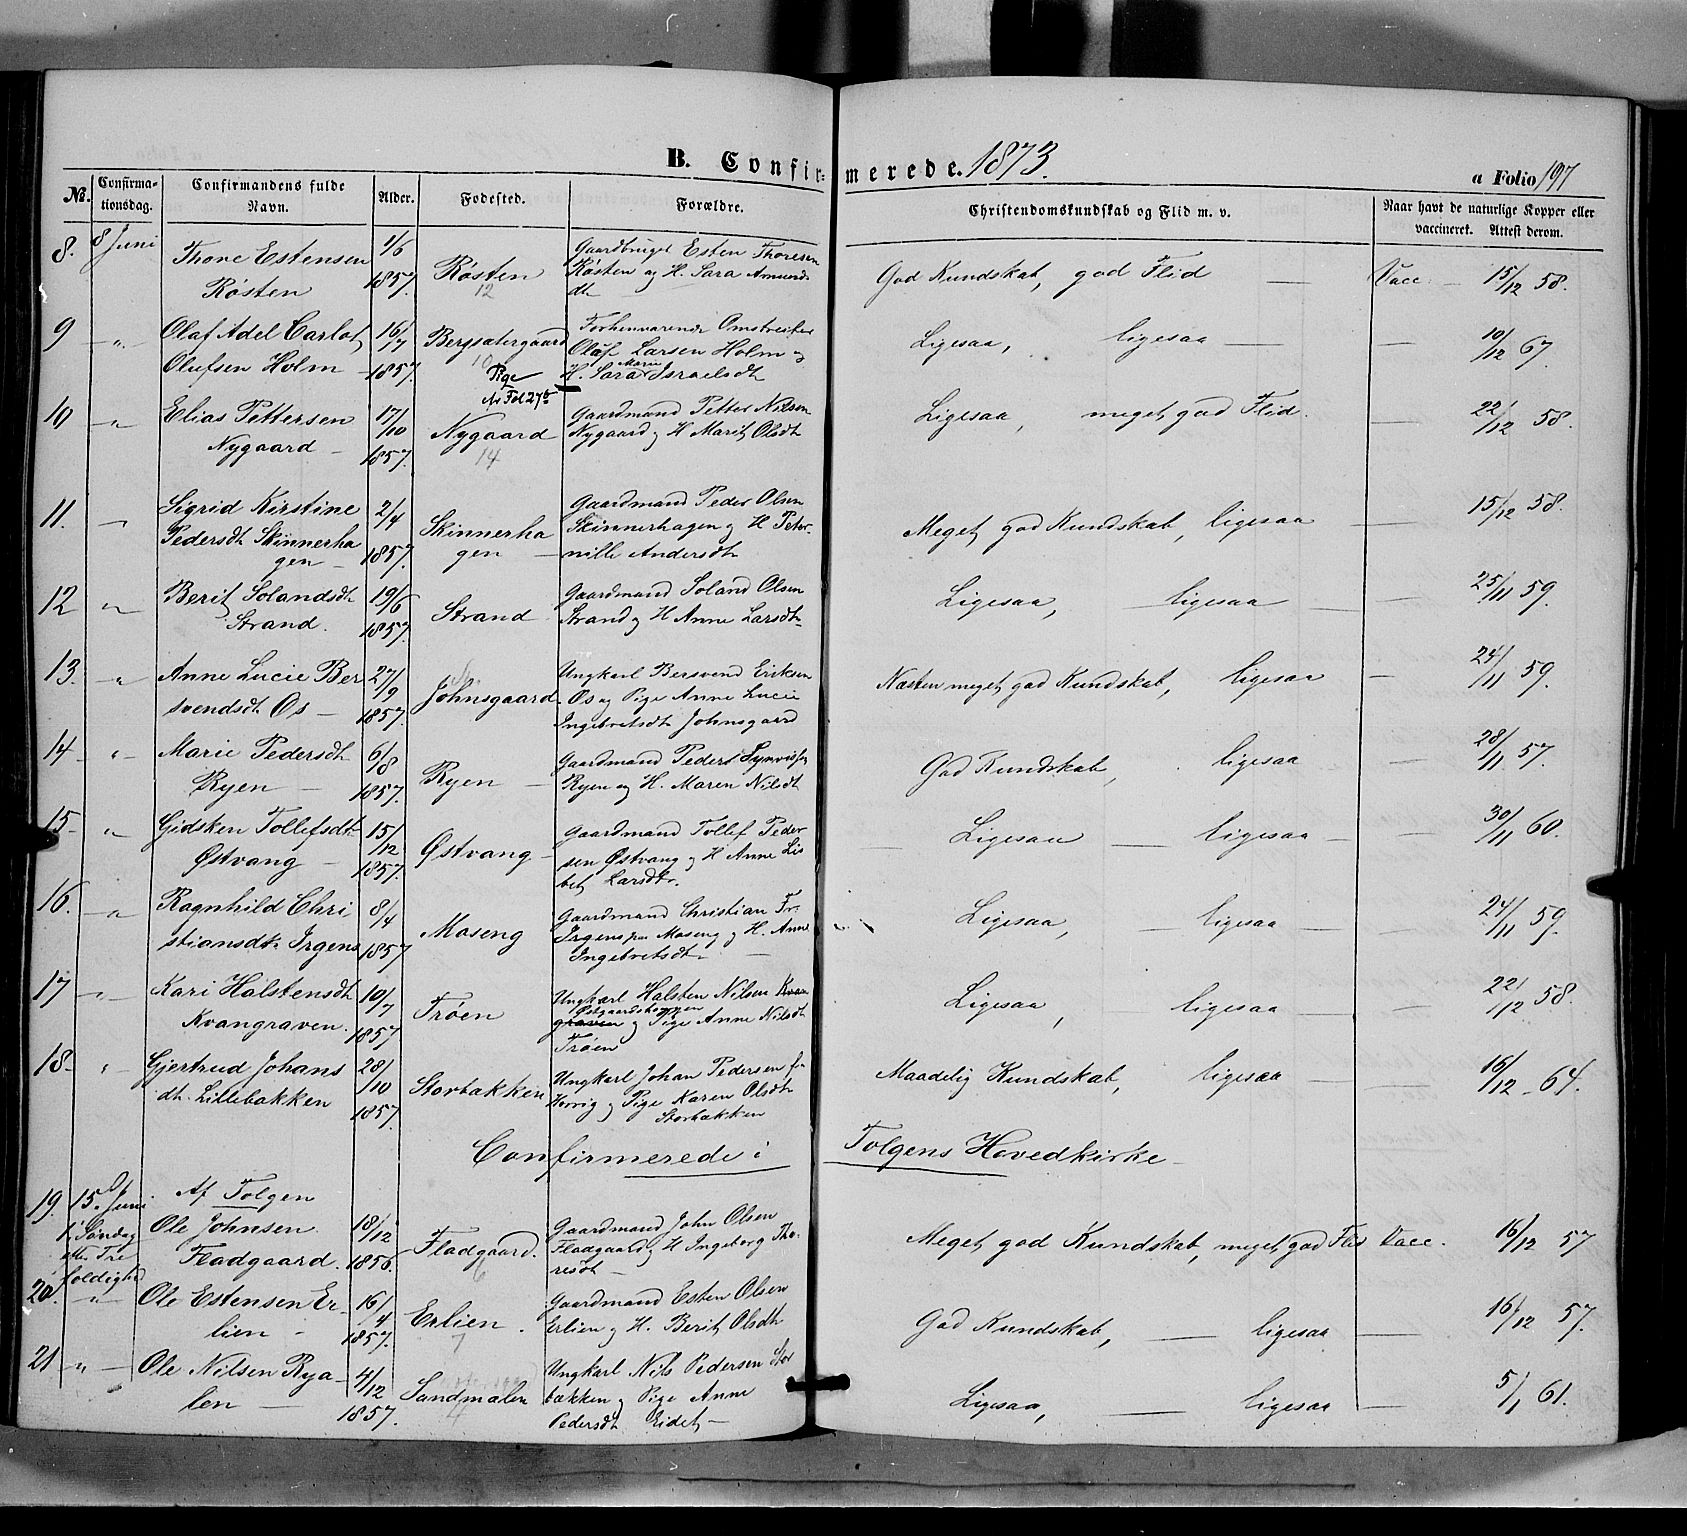 B. Confir- merede. 1873. a Folio 197
No. Confirma- tionsdag. Confirmandens fulde Navn. Alder. Fødested. Forældre. Christendomskundskab og Flid m. v. Naar havt de naturlige Kopper eller vaccineret. Attest derom.
8. 8 Juni Thore Estensen 1/6 Gaardbruger Esten Thoresen
Røsten 1857. Røsten Røsten og H. Sara Amunds God Kundskab, god Flid — Vacc. 15/12 58.
12 dt
9 — " — Olaf Adel Carlot 16/7 Bergsætergaard Forhenværende Omstreifer Ligesaa, ligesaa — — 10/12 67.
Olufsen Holm 1857. 10 Olaf Larsen Holm og
Pige H. Sara Marie Israelsdt
No Fol 27b
10 " Elias Pettersen 17/10 Nygaard Gaardmand Petter Nilsen Ligesaa, meget god Flid. — 22/12 58.
Nygaard — 1857. 14 Nygaard og H Marit Olsdt
11. " Sigrid Kirstine 2/4 Skinnerha Gaardmand Peder Olsen Meget god Kundskab, ligesaa — 15/12 58.
Pedersdt Skinnerha 1857. gen — Skinnerhagen og H Peter-
gen — nille Andersdt
12 " Berit Solandsdt 19/6 Strand Gaardmand Soland Olsen Ligesaa, ligesaa — — 25/11 59.
Strand. 1857. Strand og H Anne Larsdt
13. " Anne Lucie Ber 27/9 Johnsgaard Ungkarl Bersvend Eriksen Næsten meget god Kundskab, ligesaa — 24/11 59.
svendsdt Os — 1857. Os og Pige Anne Lucie
Ingebretsdt Johnsgaard
14 - " - Marie Pedersdt 6/8 Ryen — Gaardmand Peder Synvisse God Kundskab, ligesaa — — 28/11 57.
Ryen — 1857. Ryen og H. Maren Nilsdt
15- " Gidsken Tollefsdt 15/12 Østvang — Gaardmand Tollef Peder Ligesaa — ligesaa — — 30/11 60.
Østvang — 1857. sen Østvang og H Anne Lis
bet Larsdtr.
16. - " Ragnhild Chri 8/4 Moseng Gaardmand Christian Fr. Ligesaa, — ligesaa — — 24/11 59.
stiansdt Irgens 1857 Irgens paa Moseng og H. Anne
Ingebretsdt —
17 - " - Kari Halstensdt 10/7 Trøen Ungkarl Halsten Nilsen Kvan Ligesaa, ligesaa — — 22/12 58.
Kvangraven. 1857 graven og Pige Anne Nilsdt
Trøen
18- " - Gjertrud Johans 28/10 Storbakken Ungkarl Johan Pedersen Maadelig Kundskab, ligesaa — — 16/12 64.
dt. Lillebakken 1857. og Pige Karen Olsdt
Storbakken
Confirmerede i Tolgens Hovedkirke —
19. 15. Juni Af Tolgen
1. Søndag Ole Johnsen 18/12 Fladgaard. Gaardmand John Olsen Meget god Kundskab, meget god Flid Vacc. 16/12 57
efter Tre Fladgaard. 1856. 6 Fladgaard og H Ingeborg Tho-
foldighed resdt —
20. " Ole Estensen Er- 16/4 Erlien. Gaardmand Esten Olsen God Kundskab, — ligesaa — 16/12 57.
lien - 1857. 7 Erlien og H. Berit Olsdt
21 - " - Ole Nilsen Rya- 4/12 Sandmælen Ungkarl Nils Pedersen Stor Ligesaa, — ligesaa — 5/1 61.
len — 1857. 4 bakken og Pige Anne
Pedersdt Eidet —